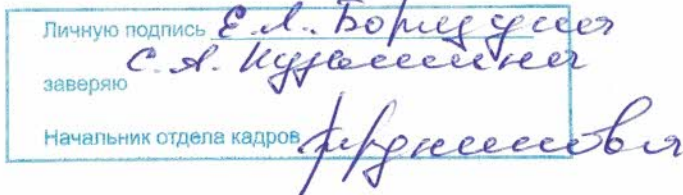 Личную подпись Е.А. Борщуся
С.А. Кузьмина
заверяю
Начальник отдела кадров